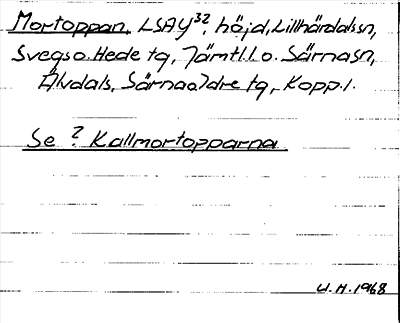 Mortoppan, LSAY³², höjd, Lillhärdals sn,
Svegs o. Hede tg, Jämtl. l. o. Särna sn,
Älvdals, Särna o Idre tg, Kopp. l.
Se ? Kallmortopparna
U. H. 1968